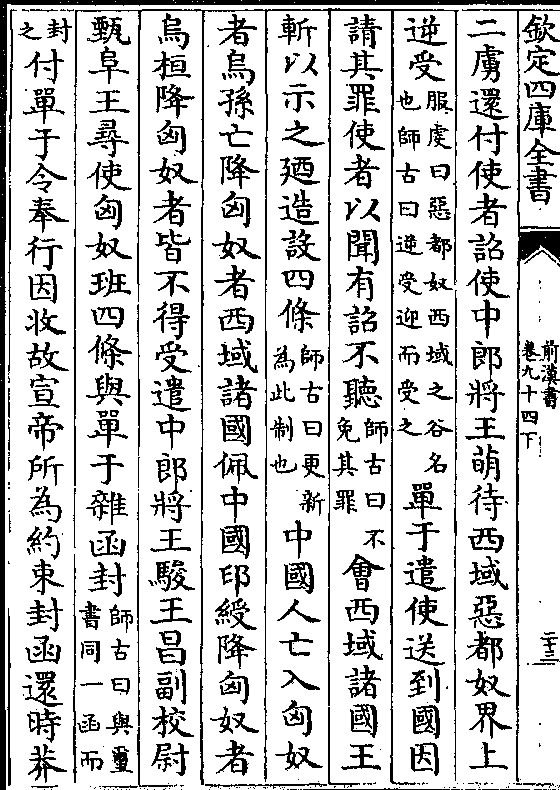 欽定四庫全書
前漢書
卷九十四下
二十三
二虜還付使者詔使中郎將王萌待西域惡都奴界上
逆受服虔曰惡都奴西域之谷名也師古曰逆受迎而受之單于遣使送到國因
請其罪使者以聞有詔不聽師古曰不免其罪會西域諸國王
斬以示之廼造設四條師古曰更新為此制也中國人亡入匈奴
者烏孫亡降匈奴者西域諸國佩中國印綬降匈奴者
烏桓降匈奴者皆不得受遣中郎將王駿王昌副校尉
甄阜王尋使匈奴班四條與單于雜函封師古曰與璽書同一函而
封之付單于令奉行因收故宣帝所為約束封函還時莽